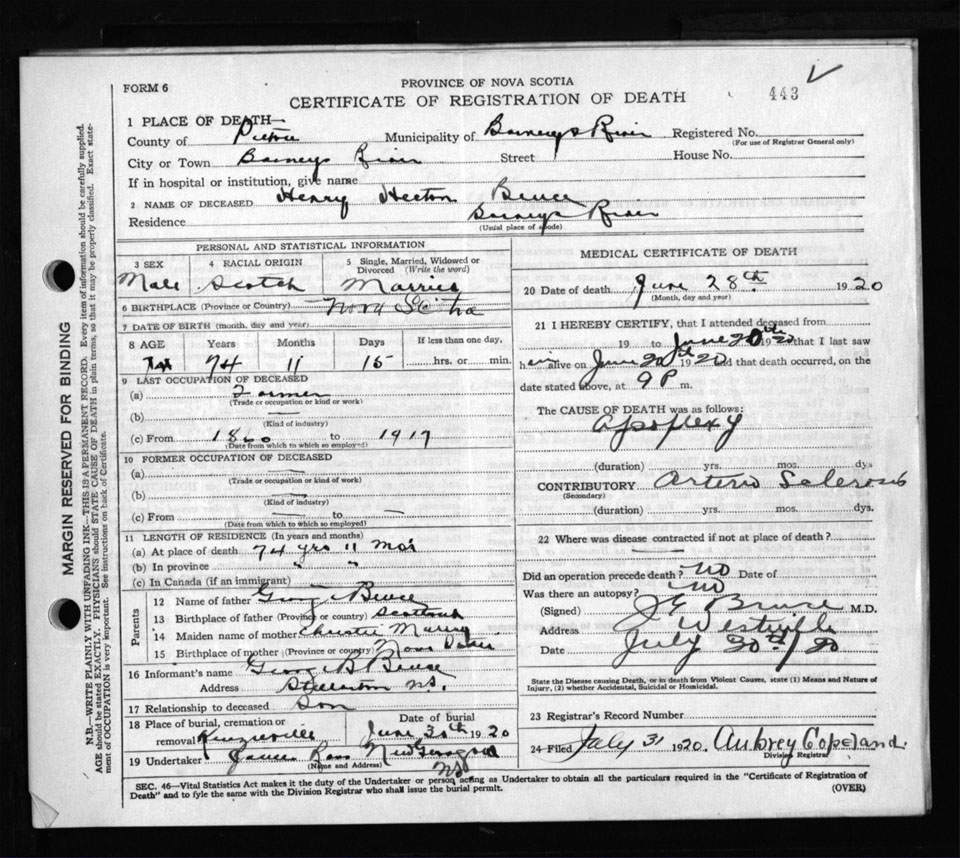 FORM 6
PROVINCE OF NOVA SCOTIA
CERTIFICATE OF REGISTRATION OF DEATH
443
1 PLACE OF DEATH—
County of Pictou Municipality of Barneys River Registered No.
(For use of Registrar General only)
City or Town Barneys River Street House No.
If in hospital or institution, give name
2 NAME OF DECEASED Henry Hector Bruce
Residence Barneys River
(Usual place of abode)
PERSONAL AND STATISTICAL INFORMATION
3 SEX 4 RACIAL ORIGIN 5 Single, Married, Widowed or Divorced (Write the word)
Male Scotch Married
6 BIRTHPLACE (Province or Country) Nova Scotia
7 DATE OF BIRTH (month, day and year)
8 AGE Years Months Days If less than one day,
74 11 15 hrs. or min.
9 LAST OCCUPATION OF DECEASED
(a) Farmer
(Trade or occupation or kind or work)
(b) —
(Kind of industry)
(c) From 1860 to 1917
(Date from which to which so employed)
10 FORMER OCCUPATION OF DECEASED
(a) —
(Trade or occupation or kind of work)
(b) —
(Kind of industry)
(c) From — to —
(Date from which to which so employed)
11 LENGTH OF RESIDENCE (In years and months)
(a) At place of death 74 yrs 11 mos
(b) In province " "
(c) In Canada (if an immigrant)
Parents
12 Name of father George Bruce
13 Birthplace of father (Province or country) Scotland
14 Maiden name of mother Christie Murray
15 Birthplace of mother (Province or country) Nova Scotia
16 Informant's name George B Bruce
Address Stellarton NS.
17 Relationship to deceased Son
18 Place of burial, cremation or removal Kenzieville Date of burial June 30th 1920
19 Undertaker James Ross New Glasgow
(Name and Address) NS
MEDICAL CERTIFICATE OF DEATH
20 Date of death June 28th 1920
(Month, day and year)
21 I HEREBY CERTIFY, that I attended deceased from
19 to June 20th 1920 that I last saw
him alive on June 20th 1920 and that death occurred, on the
date stated above, at 9 P m.
The CAUSE OF DEATH was as follows:
Apoplexy
(duration) yrs. mos. dys
CONTRIBUTORY Arterio Sclerosis
(Secondary)
(duration) yrs. mos. dys.
22 Where was disease contracted if not at place of death?
Did an operation precede death? no Date of
Was there an autopsy? no
(Signed) J E Bruce M.D.
Address Westville
Date July 20th/20
State the Disease causing Death, or in death from Violent Causes, state (1) Means and Nature of
Injury, (2) whether Accidental, Suicidal or Homicidal.
23 Registrar's Record Number
24 Filed July 31 1920. Aubrey Copeland.
Division Registrar
SEC. 46—Vital Statistics Act makes it the duty of the Undertaker or person acting as Undertaker to obtain all the particulars required in the "Certificate of Registration of
Death" and to fyle the same with the Division Registrar who shall issue the burial permit.
(OVER)
MARGIN RESERVED FOR BINDING
N.B.—WRITE PLAINLY WITH UNFADING INK—THIS IS A PERMANENT RECORD. Every item of information should be carefully supplied.
AGE should be stated EXACTLY. PHYSICIANS should STATE CAUSE OF DEATH in plain terms, so that it may be properly classified. Exact state-
ment of OCCUPATION is very important. See instructions on back of Certificate.